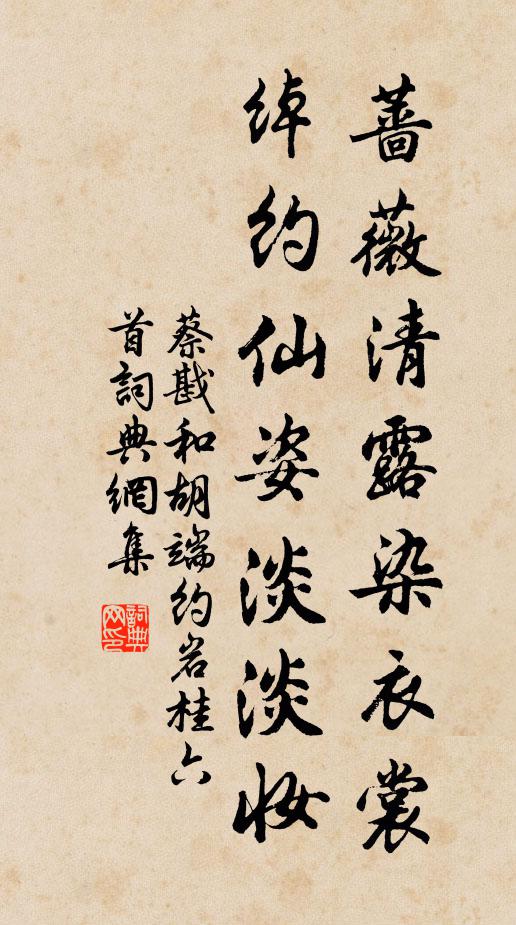 蔷薇清露染衣裳
绰约仙姿淡淡妆
蔡戡和胡端约岩桂六
首詞典網集
詞典
网印